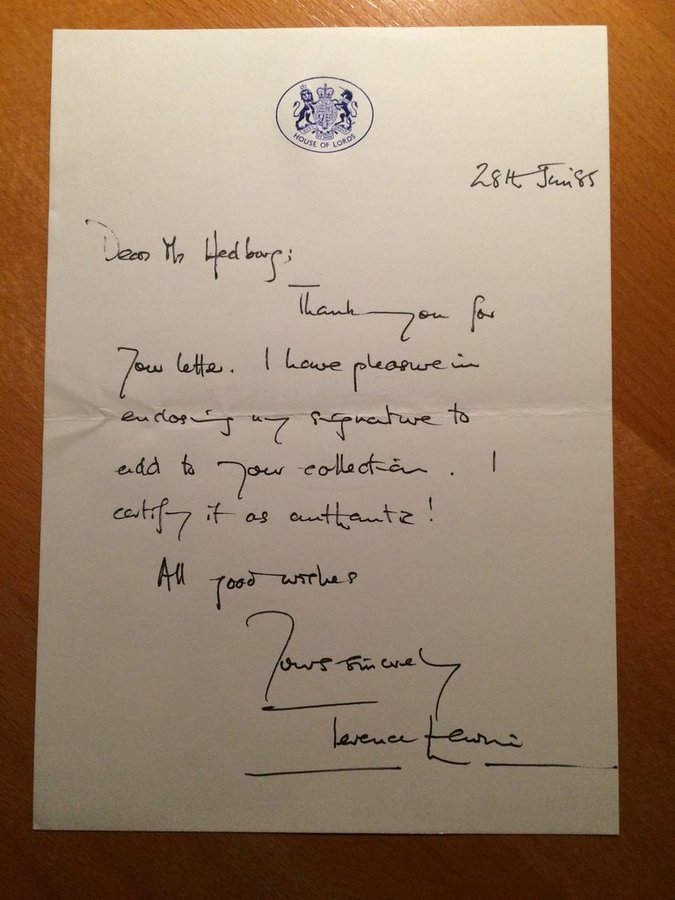 HOUSE OF LORDS
28th Jun 85
Dear Mr Hedburg;
Thank you for
your letter. I have pleasure in
enclosing my signature to
add to your collection. I
certify it as authentic!
All good wishes
Yours sincerely
Terence Lewin